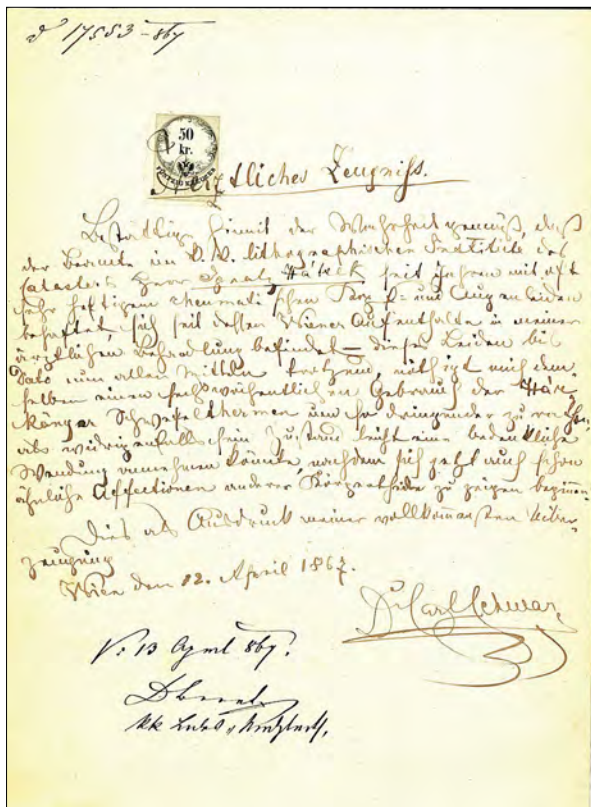 17553-867
50
kr.
Ärztliches Zeugniß.
Bestättige hiemit der Wahrheit gemäß, daß
der Beamte im k. k. lithographischen Institute des
Catasters Herr Hátsek seit Jahren mit oft
sehr heftigem rheumatischen Kopf- und Augenleiden
behaftet, sich seit dessen Wiener Aufenthalte in meiner
ärztlichen Behandlung befindet – dieses Leiden bis
Dato nun allen Mitteln trotzend, nöthigt mich dem-
selben einen sechswöchentlichen Gebrauch der
Schwefelthermen um so dringender zu
als widrigenfalls sein Zustand leicht eine bedenkliche
Wendung annehmen könnte, nachdem sich jetzt auch schon
ähnliche Affectionen anderer Körpertheile zu zeigen beginnen.
Dies als Ausdruck meiner vollkommensten Ueber-
zeugung
Wien den 12. April 1867.
Dr Carl
V. 13 April 867.
kk